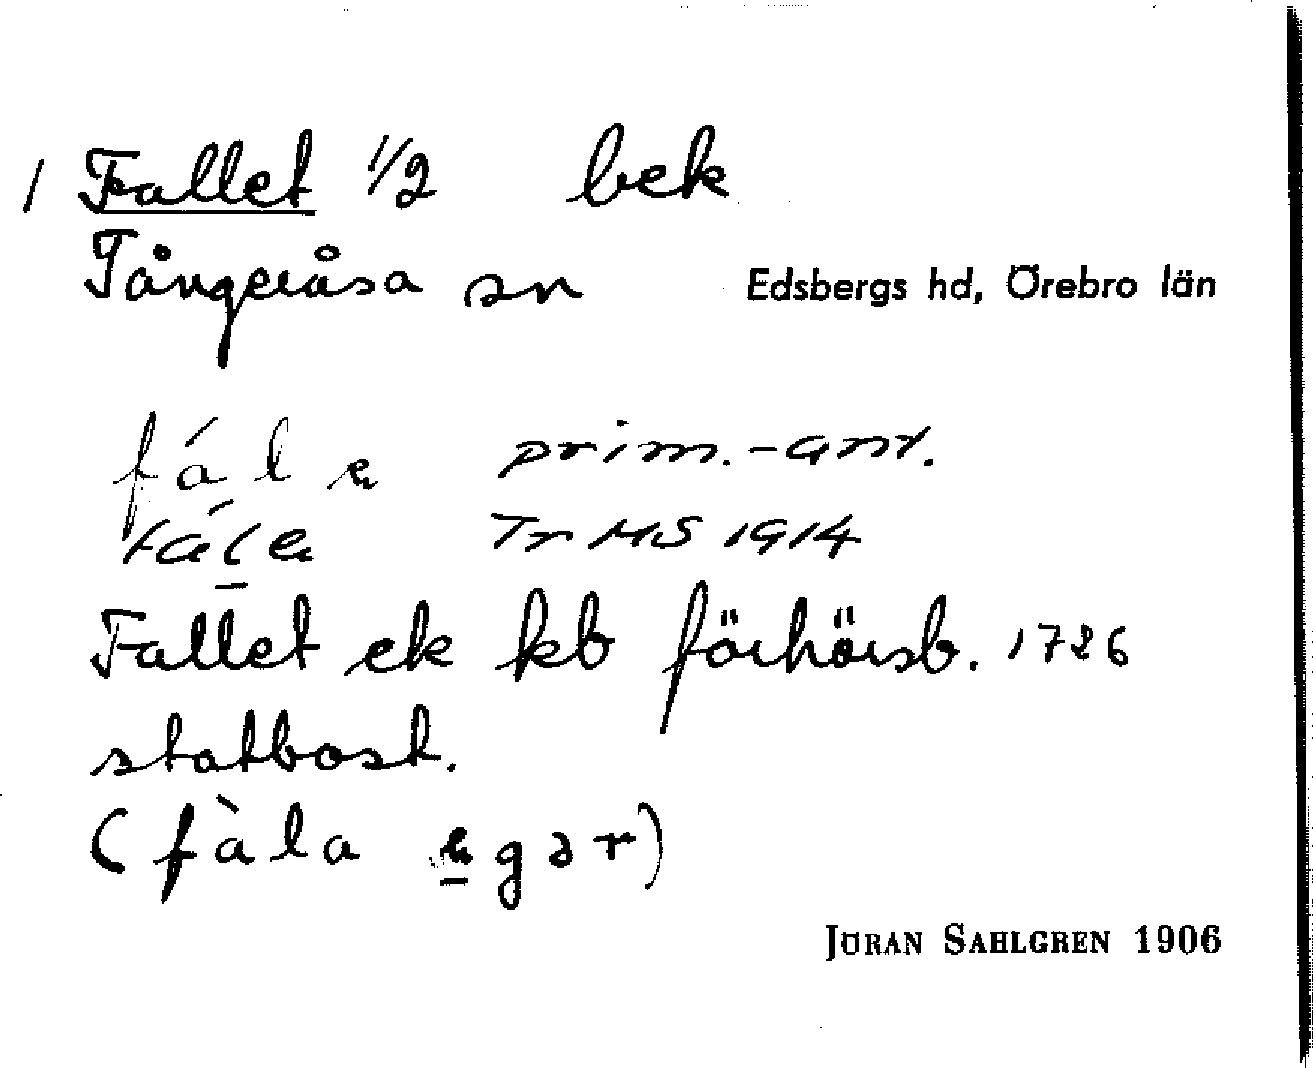 / Fallet 1/2 bek
Tångeråsa sn Edsbergs hd, Örebro län
fál prim.-ant.
Tr MS 1914
Fallet ek kb förhörsb. 1726
statbost.
(fàla
JÖRAN SAHLGREN 1906